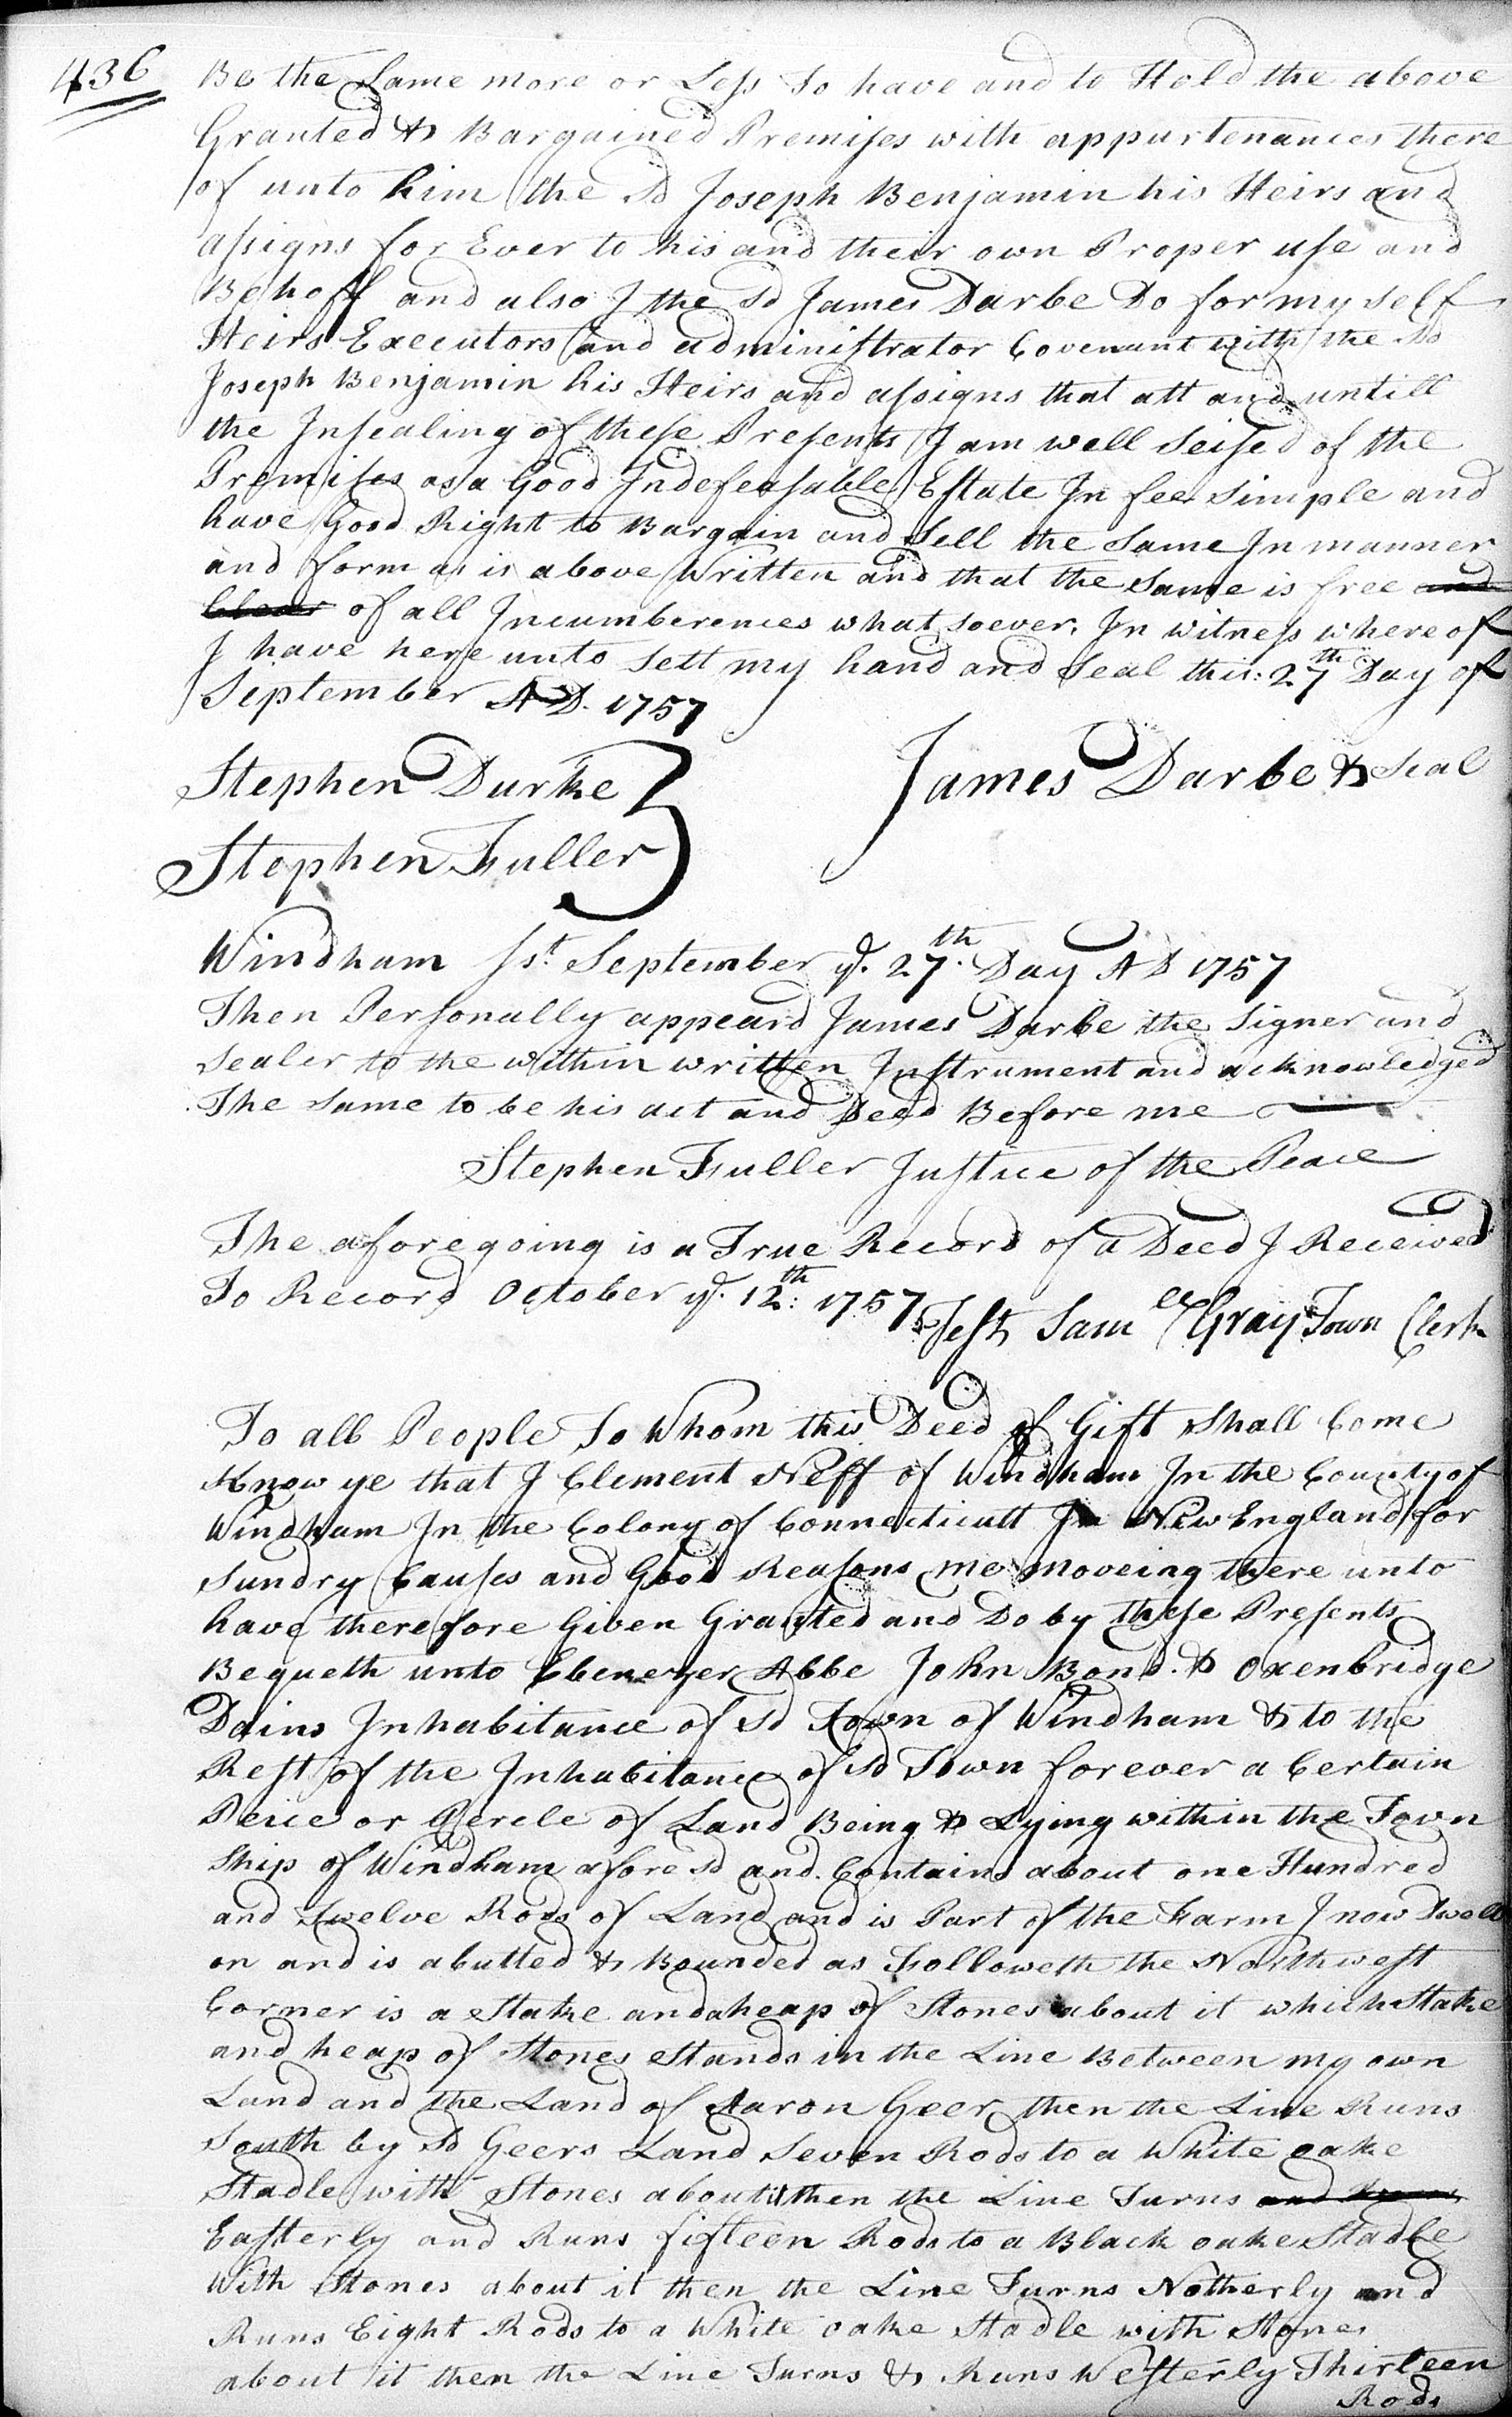 436
Be the Same more or Less To have and to Hold the above
Granted & Bargained Premises with appurtenances there
of unto him the Sd Joseph Benjamin his Heirs and
assigns for Ever to his and their own Proper use and
Behoff and also I the Sd James Darbe Do for my self
Heirs Executors and administrator Covenant with the Sd
Joseph Benjamin his Heirs and assigns that att and untill
the Insealing of these Presents I am well Seised of the
Premises as a Good Indefeasable Estate In fee Simple and
have Good Right to Bargain and Sell the Same In manner
and form as is above Written and that the Same is free and
Clear of all Incumberences what soever. In Witness where of
I have here unto Sett my hand and Seal this: 27th Day of
September AD. 1757
Stephen Durke
James Darbe & Seal
Stephen Fuller
Windham Ss.t September ye. 27th. Day AD 1757
Then Personally appeard James Darbe the Signer and
Sealer to the within written Instrument and acknowledged
The Same to be his act and Deed Before me
Stephen Fuller Justice of the Peace
The aforegoing is a True Record of a Deed I Received
To Record October ye. 12th: 1757
Test Samll Gray Town Clerk
To all People To Whom this Deed of Gift Shall Come
Know ye that I Clement Neff of Windham In the County of
Windham In the Colony of Connecticutt In New England for
Sundry Causes and Good Reasons me moveing there unto
have therefore Given Granted and Do by these Presents
Bequeth unto Ebenezer Abbe John Bond. & Oxenbridge
Dains Inhabitance of Sd Town of Windham & to the
Rest of the Inhabitance of Sd Town forever a Certain
Peice or Percle of Land Being & Lying within the Town
Ship of Windham afore Sd and Contains about one Hundred
and Twelve Rods of Land and is Part of the Farm I now Dwell
on and is abutted & Bounded as Followeth the Northwest
Corner is a Stake and a heap of Stones about it which Stake
and heap of Stones Stands in the Line Between my own
Land and the Land of Aaron Geer then the Line Runs
South by Sd Geers Land Seven Rods to a White oake
Stadle with Stones about it then the Line Turns and Runs
Easterly and Runs fifteen Rods to a Black oake Stadle
With Stones about it then the Line Turns Notherly and
Runs Eight Rods to a White oake Stadle with Stones
about it then the Line Turns & Runs Westerly Thirteen
Rods